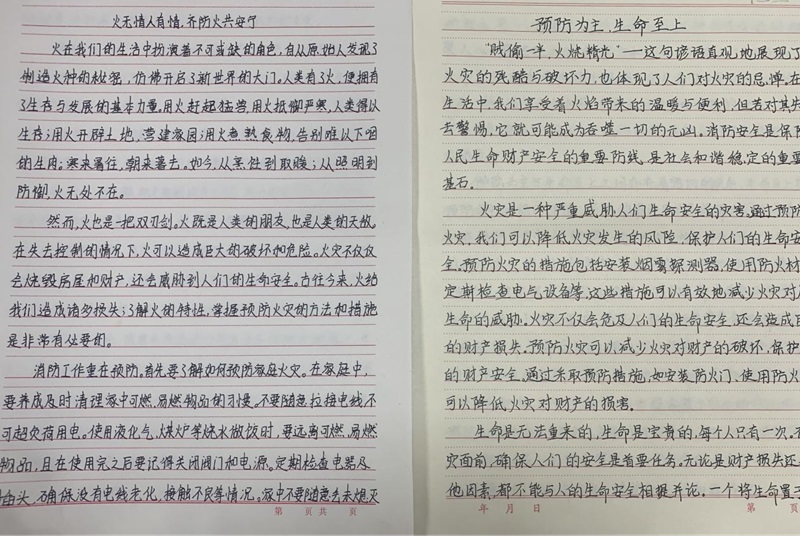 火无情人有情,齐防火共安宁
火在我们的生活中扮演着不可或缺的角色,自从原始人发现了
制造火种的秘密,仿佛开启了新世界的大门。人类有了火,便拥有
了生存与发展的基本力量,用火赶起猛兽,用火抵御严寒,人类得以
生存;用火开辟土地,营建家园;用火煮熟食物,告别难以下咽
的生肉;寒来暑往,朝来暮去。如今,从烹饪到取暖;从照明到
防御,火无处不在。
然而,火也是一把双刃剑。火既是人类的朋友,也是人类的天敌。
在失去控制的情况下,火可以造成巨大的破坏和危险。火灾不仅仅
会烧毁房屋和财产,还会威胁到人们的生命安全。古往今来,火给
我们造成诸多损失;了解火的特性,掌握预防火灾的方法和措施
是非常有必要的。
消防工作重在预防。首先要了解如何预防家庭火灾。在家庭中,
要养成及时清理家中可燃、易燃物品的习惯。不要随意拉接电线,不
可超负荷用电。使用液化气、煤炉等烧水做饭时,要远离可燃、易燃
物品,且在使用完之后要记得关闭阀门和电源。定期检查电器及
插头,确保没有电线老化,接触不良等情况。家中不要随意丢未熄灭
第 页 共 页
预防为主,生命至上
"贼偷一半,火烧精光"一这句谚语直观地展现了
火灾的残酷与破坏力,也体现了人们对火灾的忌惮。在
生活中,我们享受着火焰带来的温暖与便利,但若对其失
去警惕,它就可能成为吞噬一切的元凶。消防安全是保障
人民生命财产安全的重要防线,是社会和谐稳定的重要
基石。
火灾是一种严重威胁人们生命安全的灾害,通过预防
火灾,我们可以降低火灾发生的风险,保护人们的生命安
全。预防火灾的措施包括安装烟雾探测器、使用防火材
定期检查电气设备等,这些措施可以有效地减少火灾对人
生命的威胁。火灾不仅会危及人们的生命安全,还会造成巨
的财产损失。预防火灾可以减少火灾对财产的破坏,保护
的财产安全。通过采取预防措施,如安装防火门、使用防火
可以降低火灾对财产的损害。
生命是无法重来的,生命是宝贵的,每个人只有一次,在
灾面前,确保人们的安全是首要任务。无论是财产损失还
他因素,都不能与人的生命安全相提并论。一个将生命置于
年 月 日
第 页